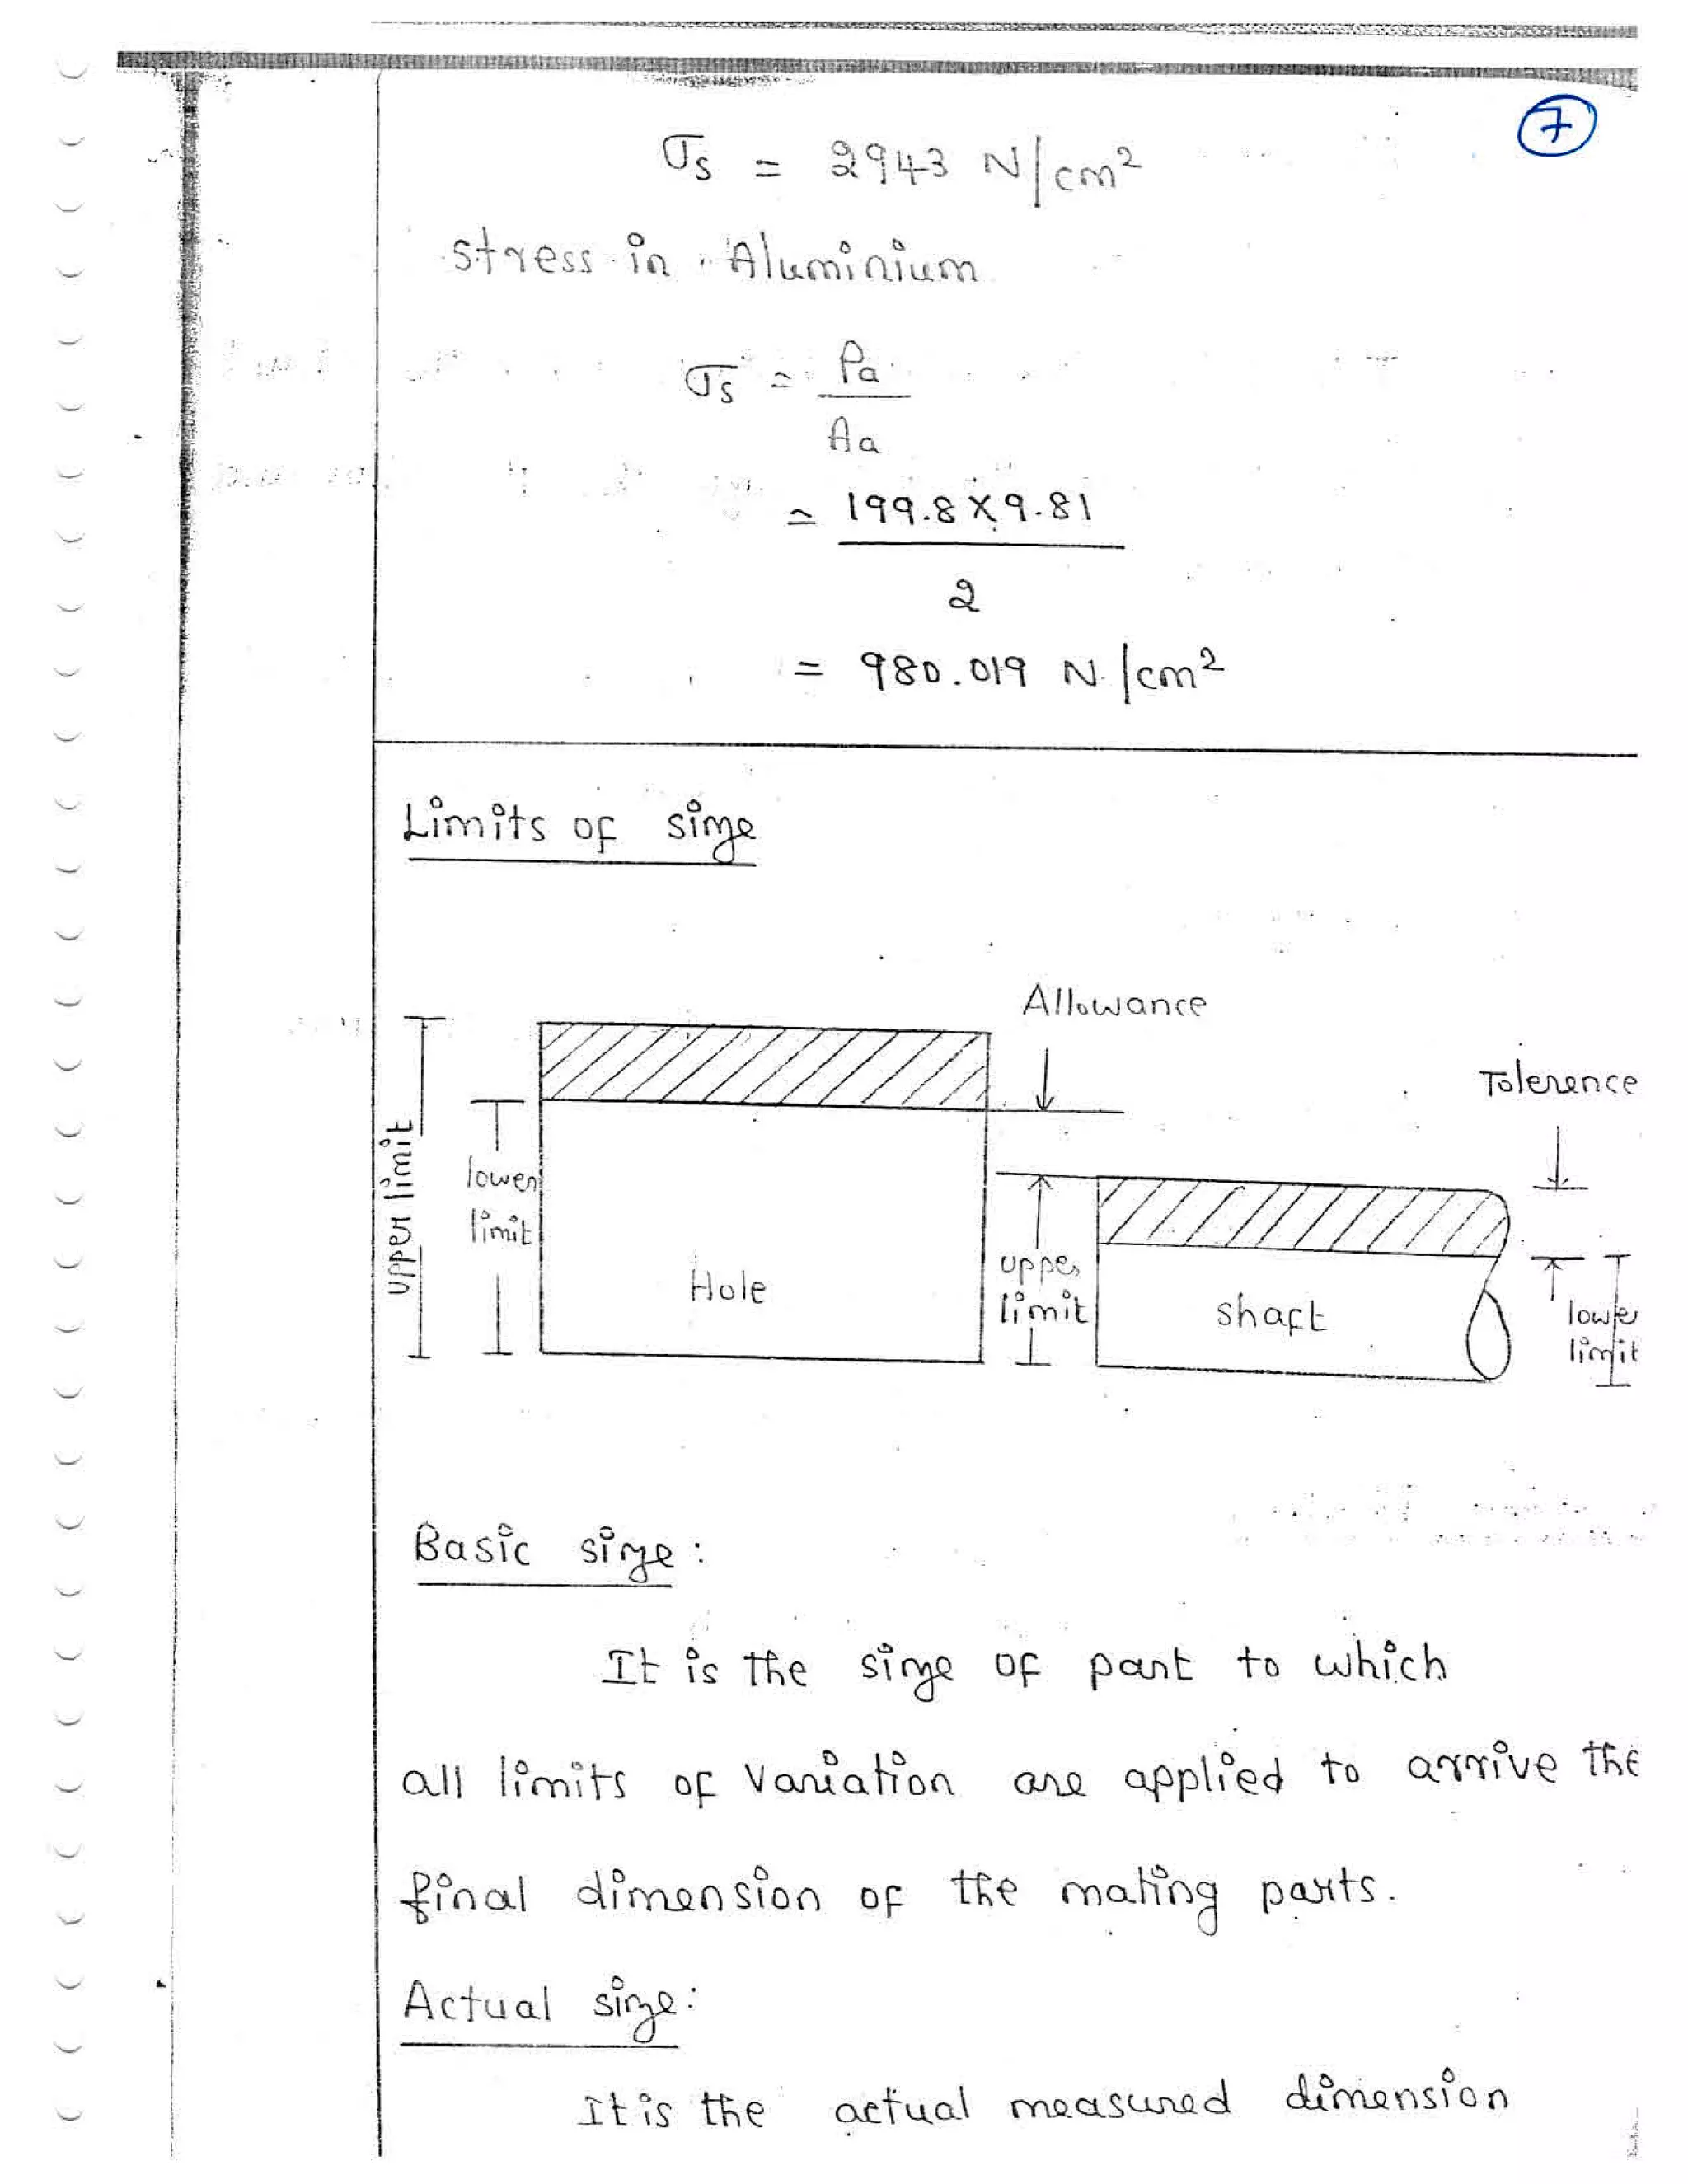 7
σs = 2943 N/cm²
stress in Aluminium
σs = Pa
Aa
= 199.8 X 9.81
2
= 980.019 N/cm²
Limits of size
Allowance
Tolerence
upper limit
lower
limit
Hole
upper
limit
shaft
lower
limit
Basic size:
It is the size of part to which
all limits of variation are applied to arrive the
final dimension of the mating parts.
Actual size:
It is the actual measured dimension